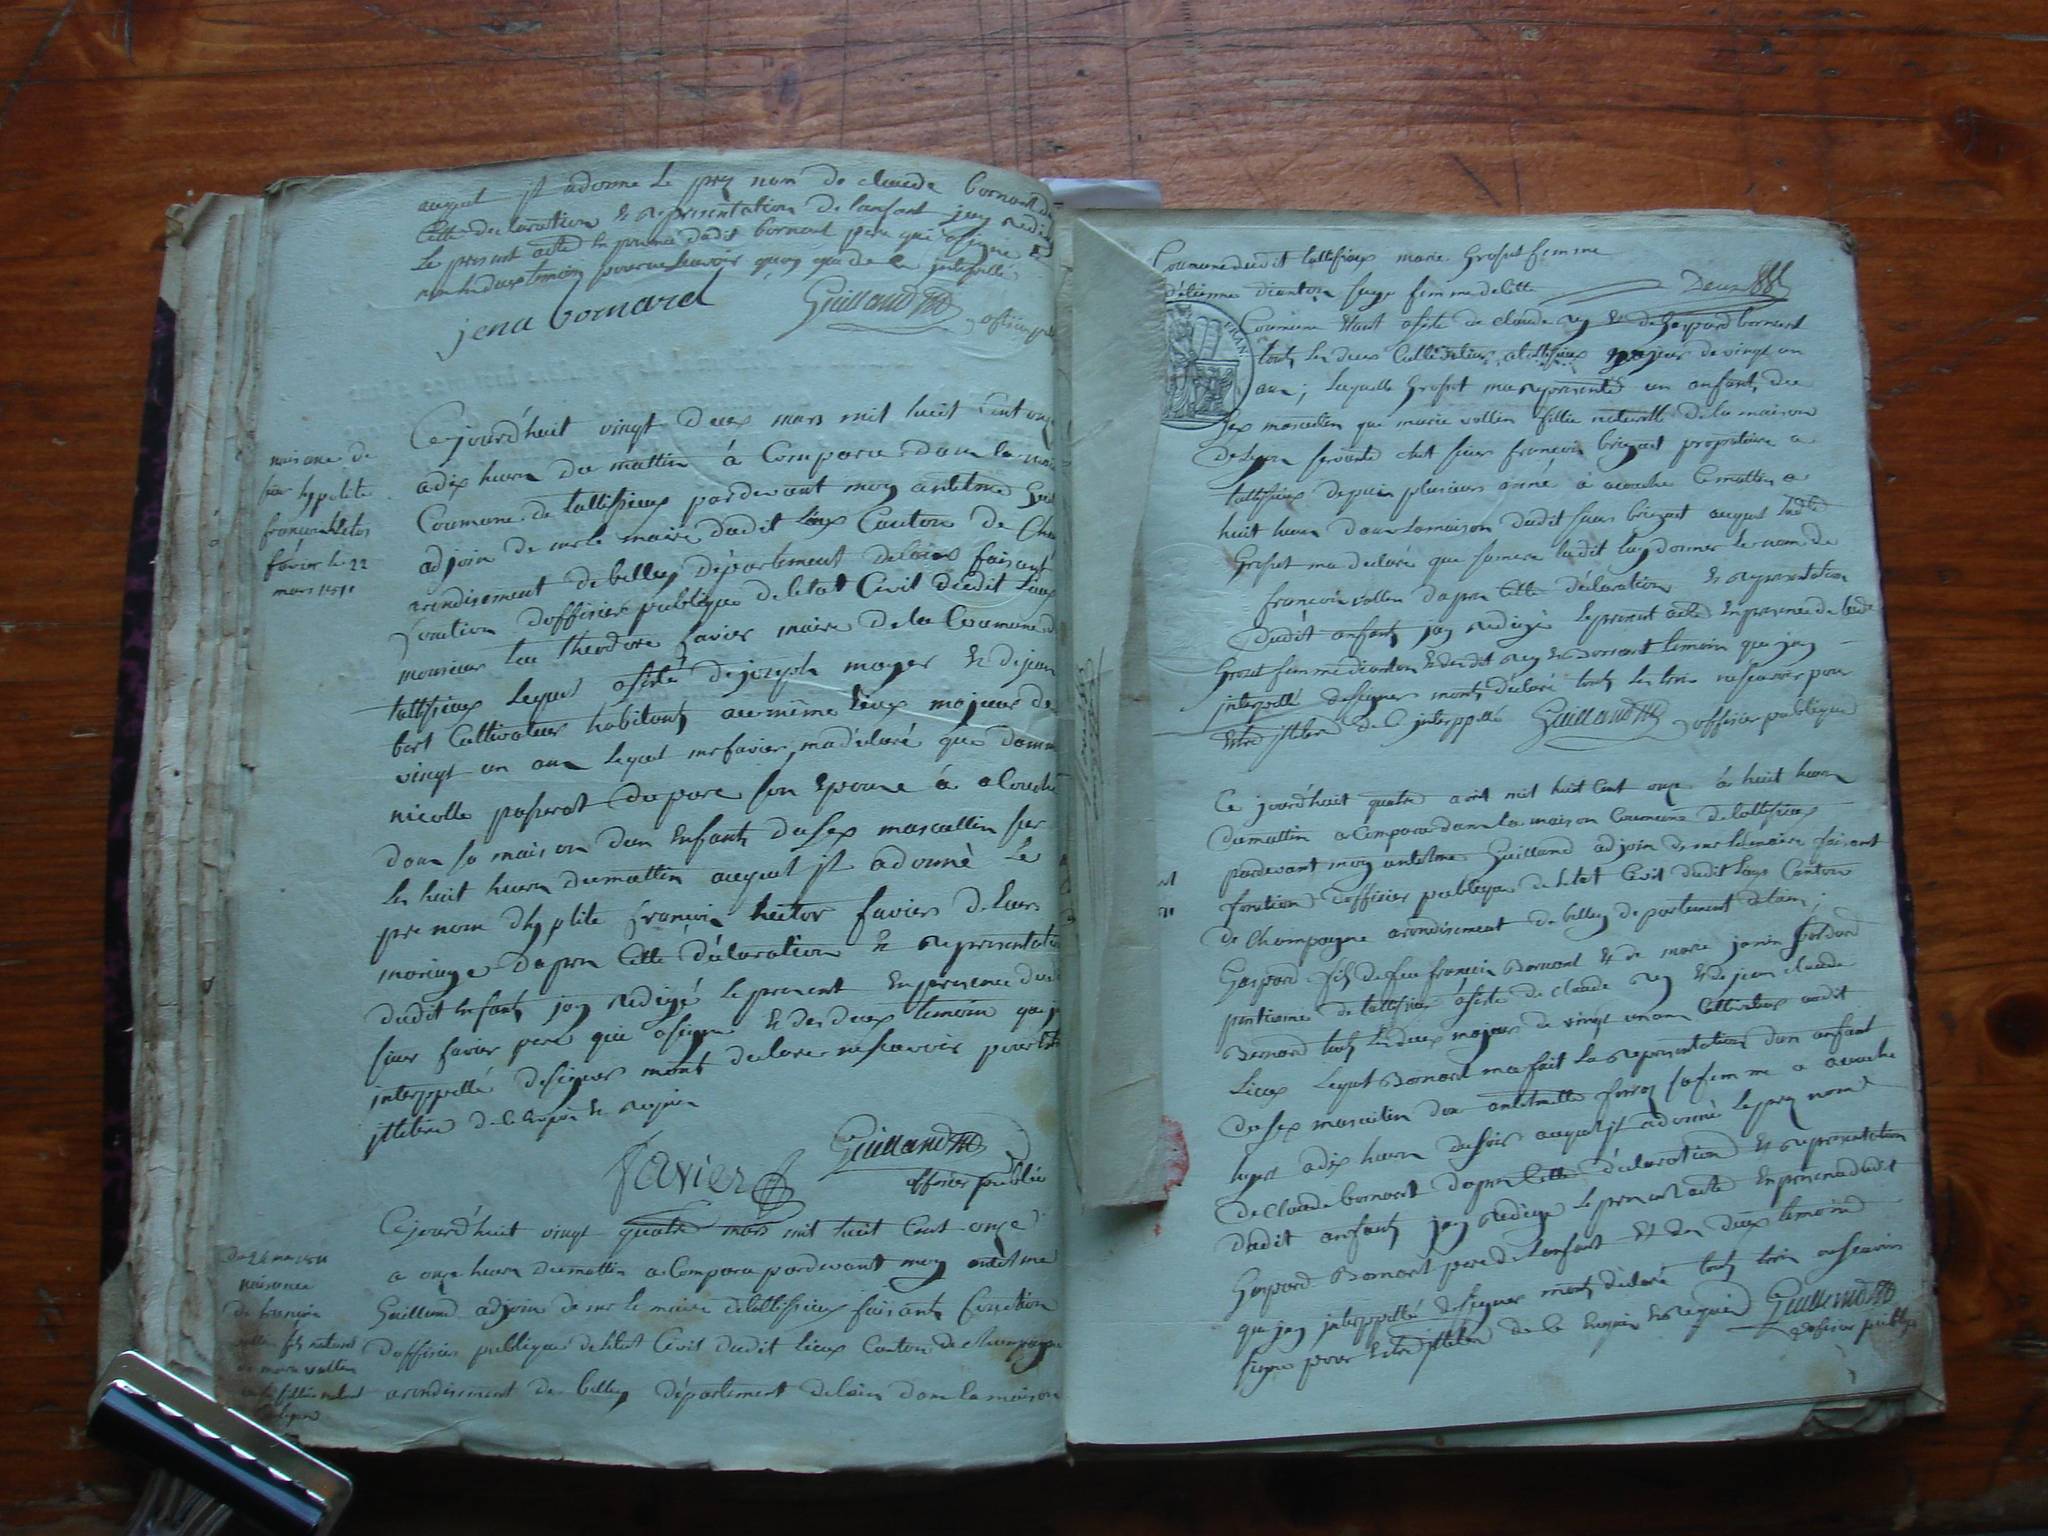 auquel jl adonne Le prez nom de claude bornard
Cette declaration & representation de lanfant jay redi
Le present acte En presence dudit bornard pere qui asigne &
non les deux temoin pour ne scavoir quoy que de ce jnterpellé
jena bornard Guilland officier pu
Cejourd'huit vingt deux mars mil huit Cent onze
adix heure du mattin à Comparu dans la
Coumune de tallissieux pardevant moy antelme Guil
adjoin de mr le maire dudit Lieux Canton de Cha
arondisement de belley département delain faisant
fonction d'officier publique de letat Civil dudit Lieux
monsieur theodore favier maire de la Coumune
tallissieux Lequel asisté de joseph moyer & de jean
bert Cultivateur habitants aumême Lieux majeur de
vingt un an Lequel mr favier ma déclaré que dame
nicolle passerat duparc son Epouse à acouché
dans sa maison d'un Enfant du sex mascullin sur
Les huit heure dumattin auquel jl adonné Le
pre nom d'hyplite françois hector favier de Leurs
mariage Dapres Cette déclaration & representation
dudit Enfant jay redigé Le present En presence du
sieur favier pere qui asigné & des deux temoin que j
interppellé de signer mont declaré ne scavoir pour
jlleteré de ce Enquis & requis
Favier Guilland
officier public
naisance de
sieur hypolite
françois hector
favier le 22
mars 1811
Cejourd'huit vingt quatre mars mil huit Cent onze
a onze heure du mattin a Comparu pardevant moy antelme
Guilland adjoin de mr le maire de tallissieux faisant fonction
d'officier publique de letat Civil dudit Lieux Canton de champagne
arondisement de belley département delain dans la maison
naisance
de françois
vollin fils naturel
de marie vollin
Coumune dudit tallissieux marie Grosset femme
d'étienne dianton sage femme de Cette
Coumune Etant asisté de claude rey & de Gaspard bornard
touts les deux Cultivateur a tallissieux majeur de vingt un
an; Laquelle Grosset ma representé un enfant du
sex masculin que marie vollin fille naturelle de la maison
de Lyon servante chet sieur françois brizuet proprietaire a
tallissieux depuis plusieurs anné à acouché Ce mattin a
huit heure dans la maison dudit sieur brizuet auquel ladite
Grosset ma declaré que sa mere ludit luy donner Le nom de
françois vollin dapres Cette déclaration & representation
dudit anfant jay redigé Le present acte En presence de ladite
Grosset femme dianton & desdit rey & Bornard temoin que jay
interpellé de signer mont déclaré touts les trois ne scavoir pour
Etre jlletere de ce jnterppellé Guilland officier publique
Ce jourd'huit quatre avril mil huit Cent onze à huit heure
du mattin a Comparu dans la maison Coumune de tallissieux
pardevant moy antelme Guilland adjoin de mr le maire faisant
fonction d'officier publique de letat Civil dudit Lieux Canton
de Champagne arondisement de belley departement delain;
Gaspard fils de feu françois Bornard & de marie
de tallissieux asisté de claude rey & de jean claude
Bernard touts les deux majeur de vingt un an Cultivateur audit
Lieux Lequel Bornard ma fait La representation d'un enfant
du sex masculin don antelmette sa femme a acouché
hyer a dix heure du soir auquel jl adonné Le prez nom
de claude bornard Dapres Cette déclaration & representation
dudit anfant jay redigé Le present acte En presence dudit
Gaspard Bornard pere de lanfant & des deux temoins
que jay jnterppellé de signer mont déclaré touts trois ne scavoir
signer pour Etre jlletere de ce Enquis & requis Guilland
officier publique